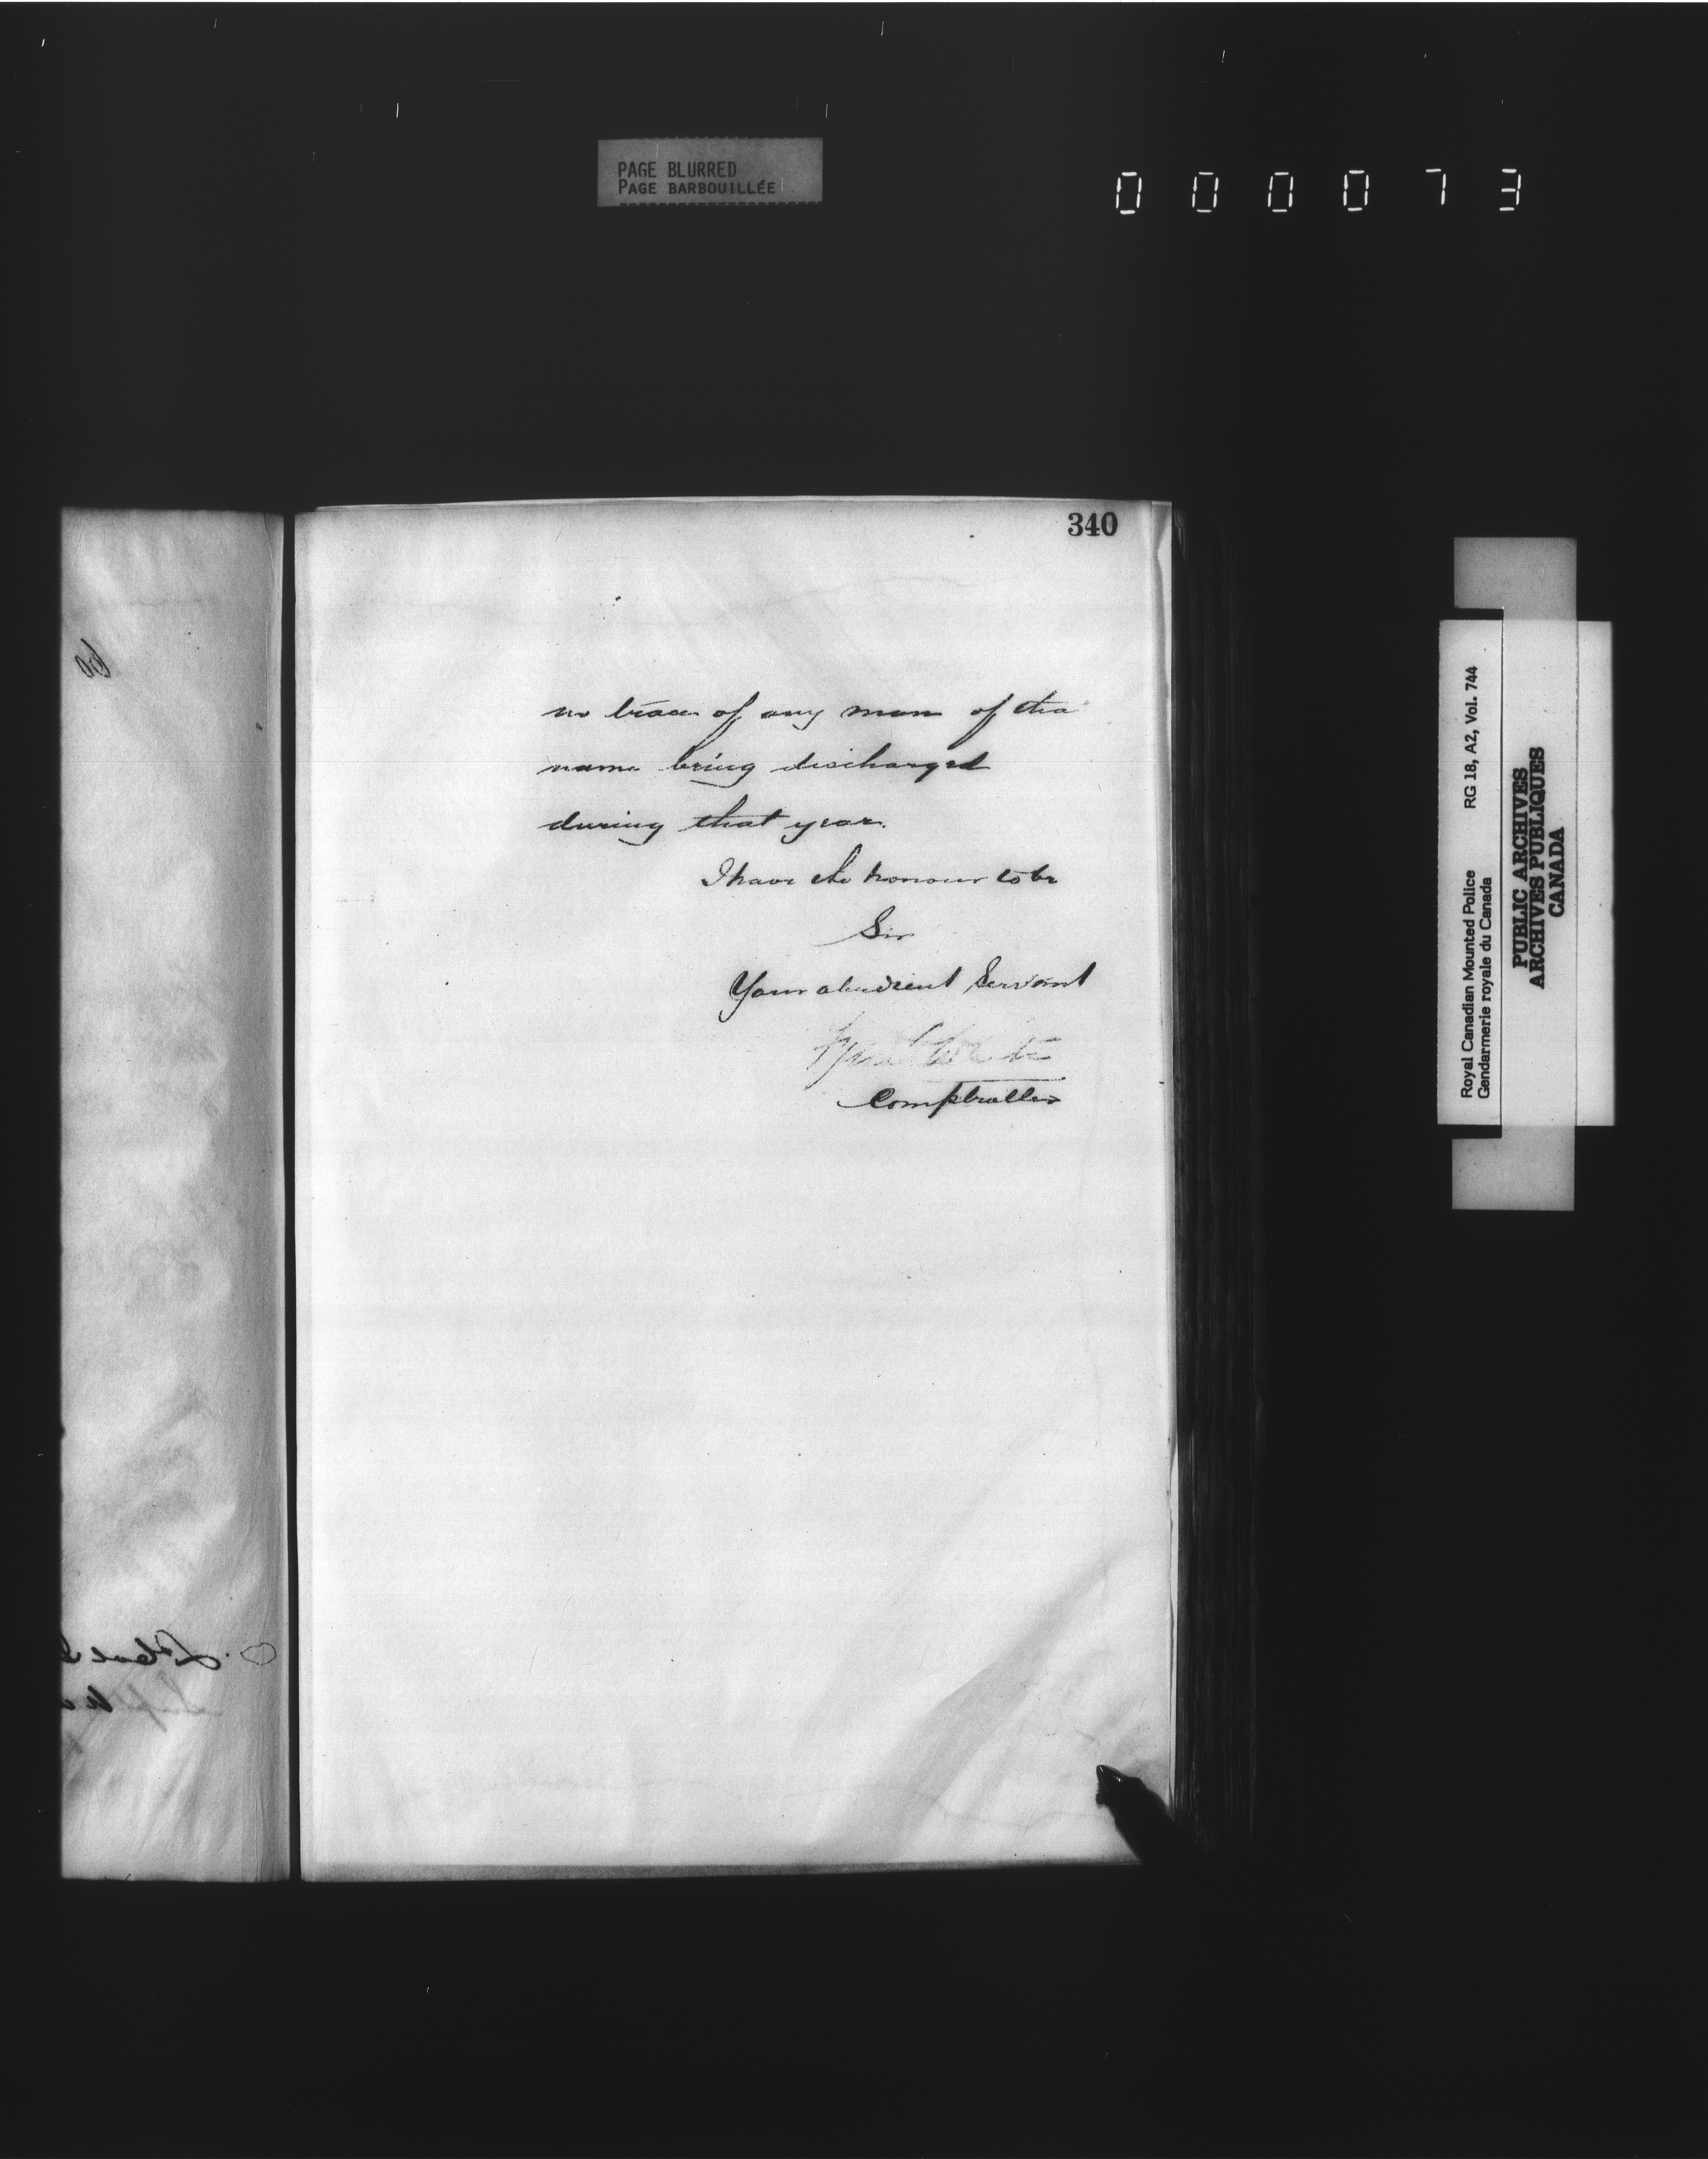 PAGE BLURRED
PAGE BARBOUILLÉE
000073
340
no trace of any man of tha
name being discharged
during that year.
I have the honour to be
Sir
Your obedient Servant
Fred White
Comptroller
Royal Canadian Mounted Police RG 18, A2, Vol. 744
Gendarmerie royale du Canada
PUBLIC ARCHIVES
ARCHIVES PUBLIQUES
CANADA